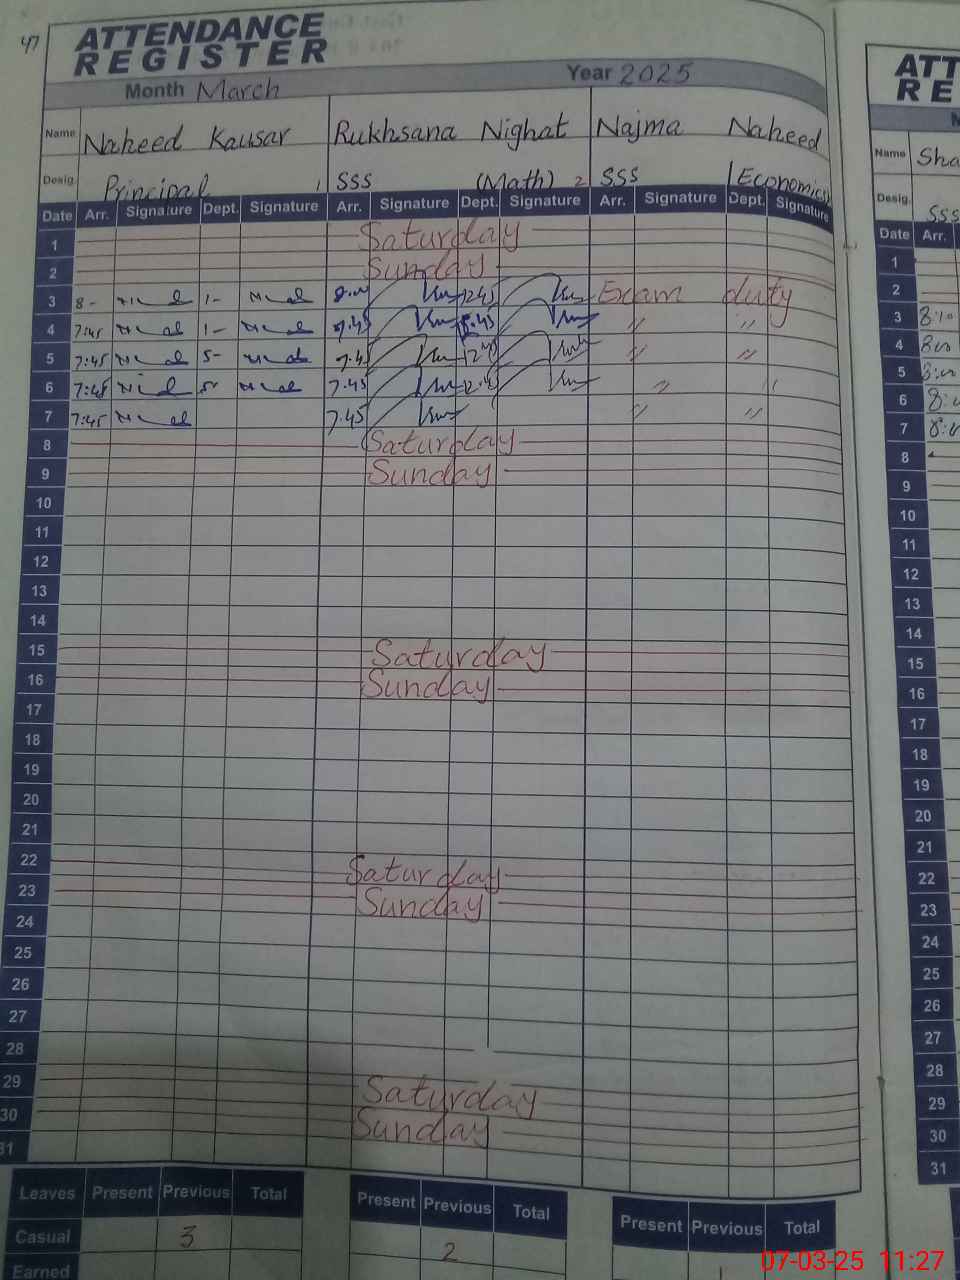 47
ATTENDANCE
REGISTER
Month March Year 2025
Name Naheed Kausar Rukhsana Nighat Najma Naheed
Desig. Principal 1 SSS (Math) 2 SSS (Economics)
Date Arr. Signature Dept. Signature Arr. Signature Dept. Signature Arr. Signature Dept. Signature
1 Saturday
2 Sunday
3 8- 1- 8:00 1245 Exam duty
4 7:45 1- 7.45 〃 〃
5 7:45 5- 7.45 〃 〃
6 7:45 7.45 〃 〃
7 7:45 7.45 〃 〃
8 Saturday
9 Sunday
10
11
12
13
14
15 Saturday
16 Sunday
17
18
19
20
21
22 Saturday
23 Sunday
24
25
26
27
28
29 Saturday
30 Sunday
31
Leaves Present Previous Total Present Previous Total Present Previous Total
Casual 3 2
Earned
ATT
RE
Name Sha
Desig. SSS
Date Arr.
1
2
3 8:10
4 8:00
5 8:00
6
7
8
9
10
11
12
13
14
15
16
17
18
19
20
21
22
23
24
25
26
27
28
29
30
31
07-03-25 11:27